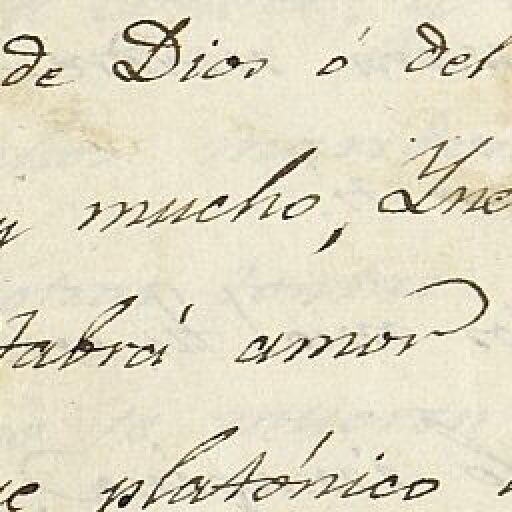 de Dios ó del
y mucho, Yne
habrá amor
ue platónico